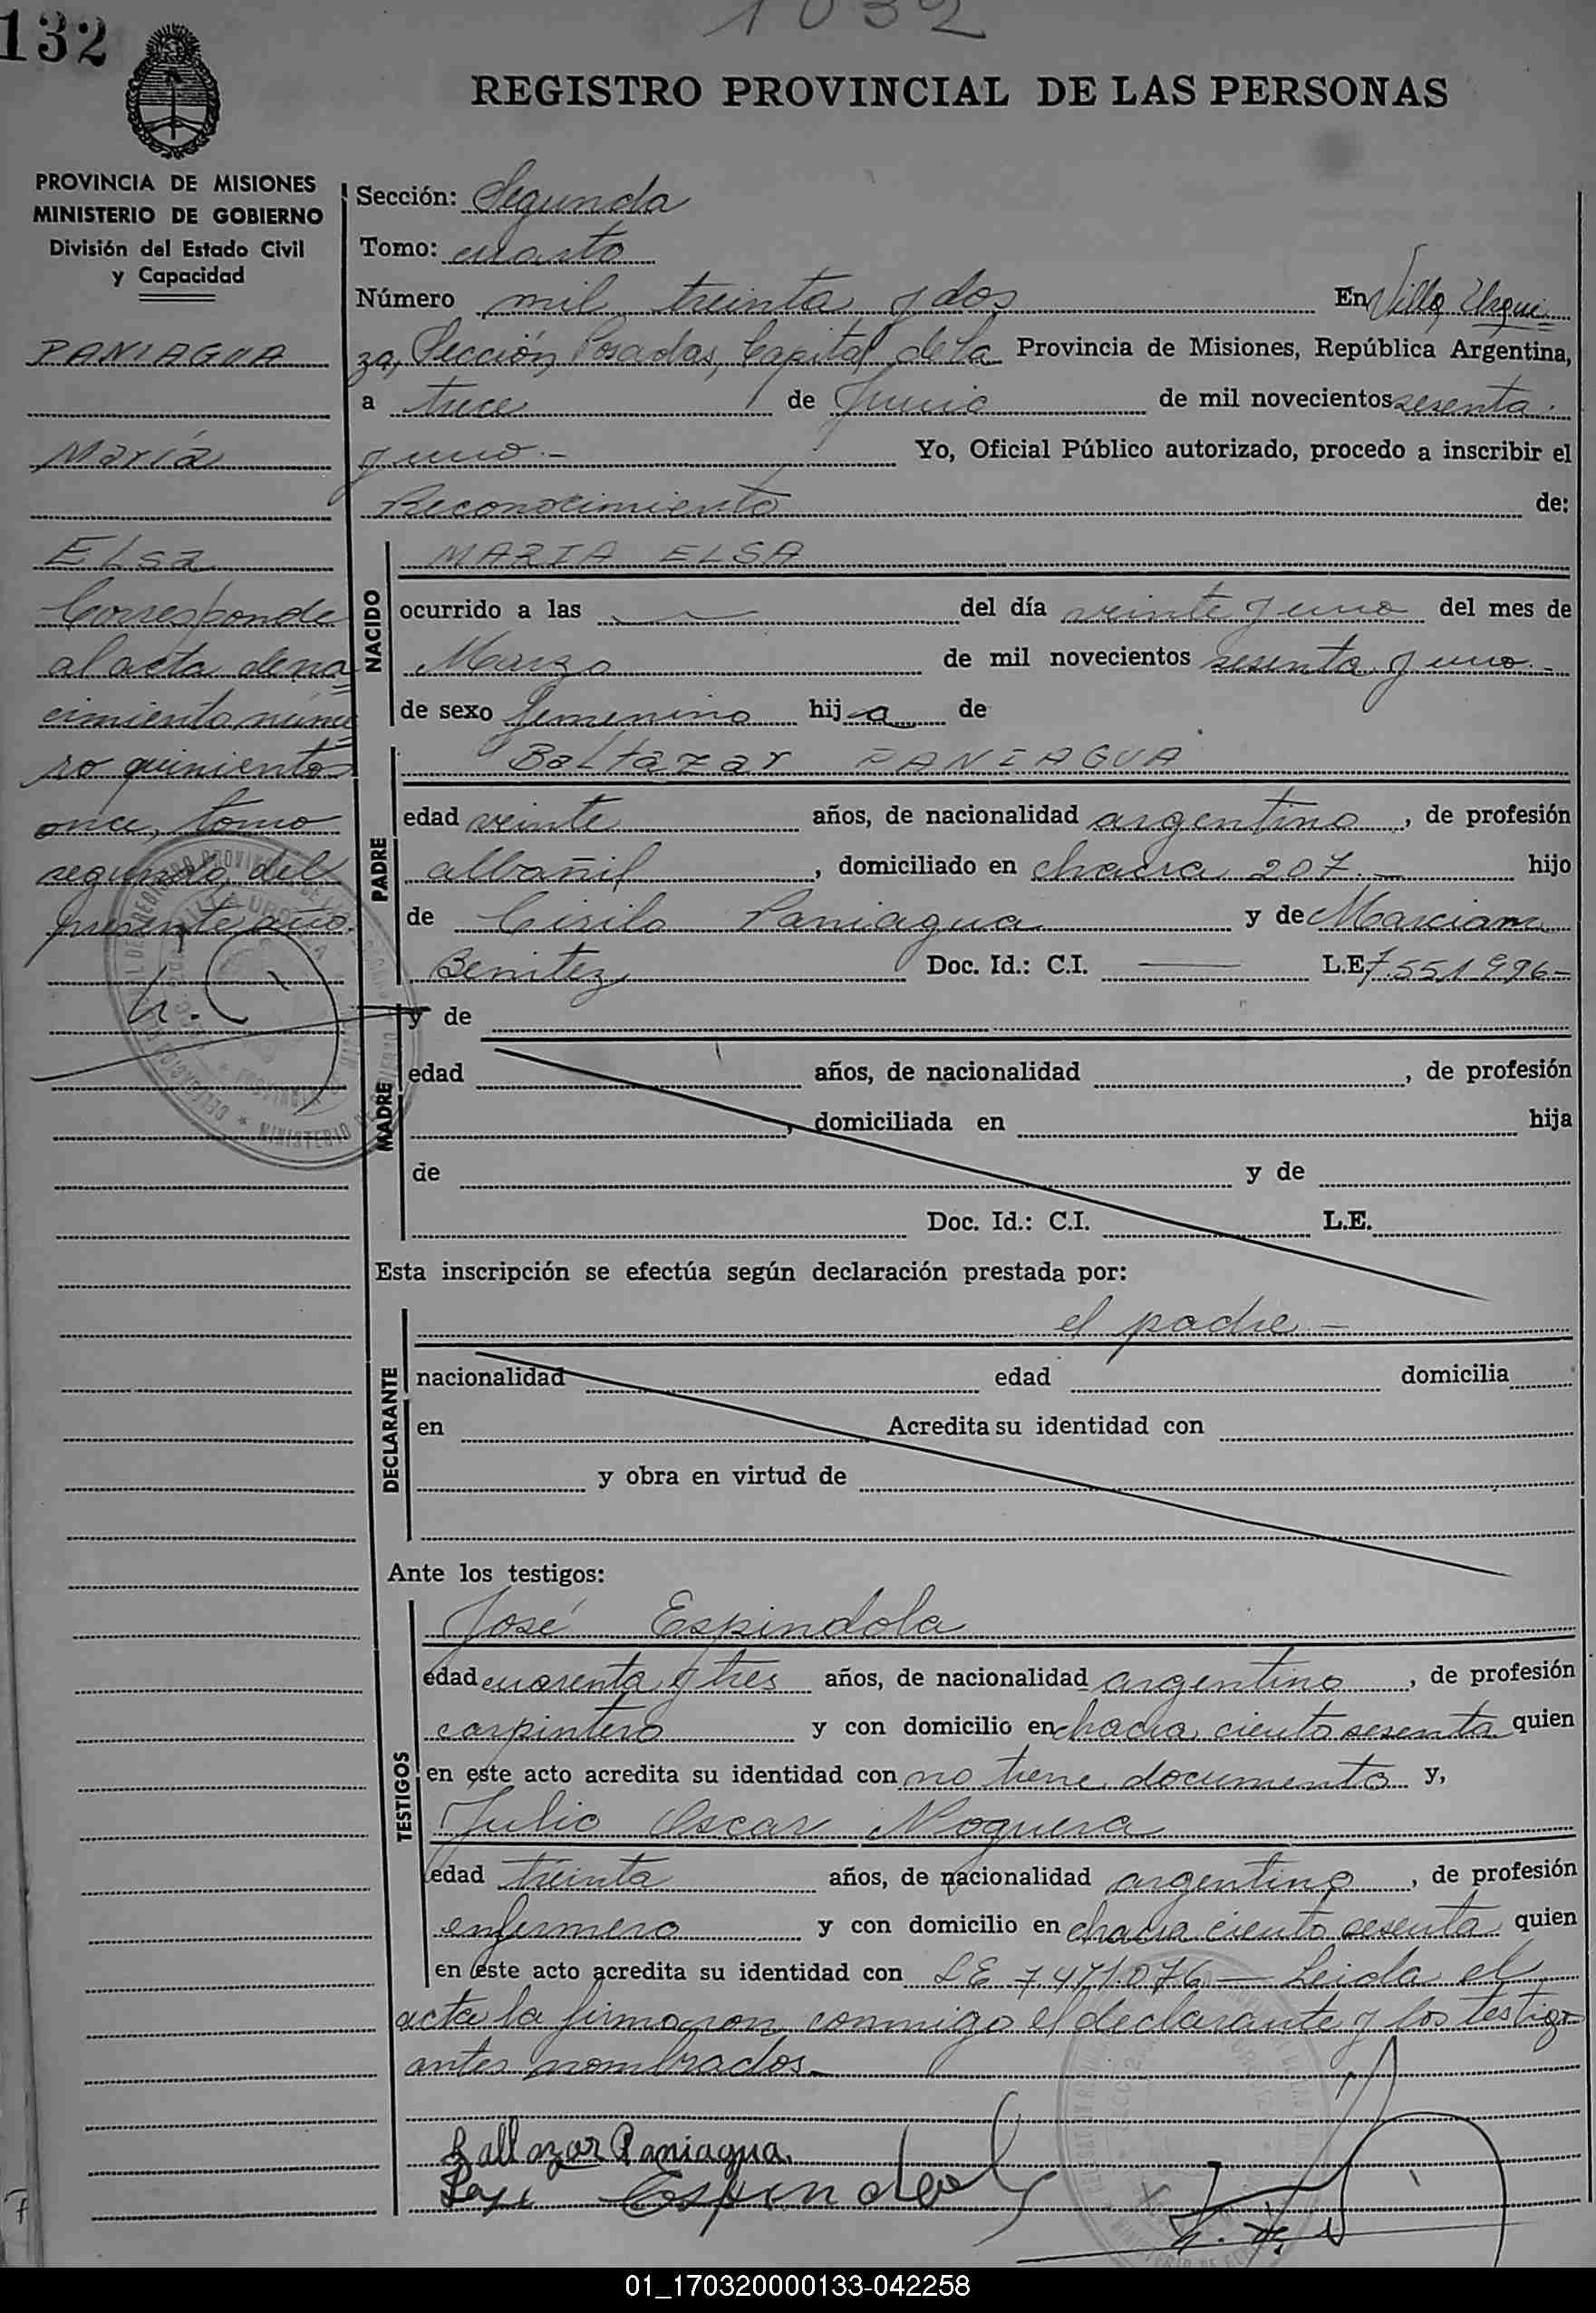 132
1032
REGISTRO PROVINCIAL DE LAS PERSONAS
PROVINCIA DE MISIONES
MINISTERIO DE GOBIERNO
División del Estado Civil
y Capacidad
PANIAGUA
María
Elsa
Corresponde
al acta de na
cimiento, núme
ro quinientos
once, tomo
segundo del
presente año.
Sección: Segunda
Tomo: cuarto
Número mil treinta y dos En Villa Urqui
za, Sección Posadas, Capital de la Provincia de Misiones, República Argentina,
a trece de Junio de mil novecientos sesenta
y uno.- Yo, Oficial Público autorizado, procedo a inscribir el
Reconocimiento de:
NACIDO
MARIA ELSA
ocurrido a las del día veinte y uno del mes de
Marzo de mil novecientos sesenta y uno.-
de sexo femenino hij a de
PADRE
Baltazar PANIAGUA
edad veinte años, de nacionalidad argentino, de profesión
albañil, domiciliado en chacra 207.- hijo
de Cirilo Paniagua y de Marciana
Benitez Doc. Id.: C.I. — L.E. 7.551.996-
MADRE
y de
edad años, de nacionalidad , de profesión
, domiciliada en hija
de y de
Doc. Id.: C.I. L.E.
Esta inscripción se efectúa según declaración prestada por:
DECLARANTE
el padre -
nacionalidad edad domicilia
en Acredita su identidad con
y obra en virtud de
Ante los testigos:
TESTIGOS
José Espindola
edad cuarenta y tres años, de nacionalidad argentino, de profesión
carpintero y con domicilio en chacra ciento sesenta quien
en este acto acredita su identidad con no tiene documento y,
Julio Oscar Noguera
edad treinta años, de nacionalidad argentino, de profesión
enfermero y con domicilio en chacra ciento sesenta quien
en este acto acredita su identidad con L E 7.471.076 — Leida el
acta la firmaron conmigo el declarante y los testigo
antes nombrados.-
Baltazar Paniagua.
José Espindola
01_170320000133-042258